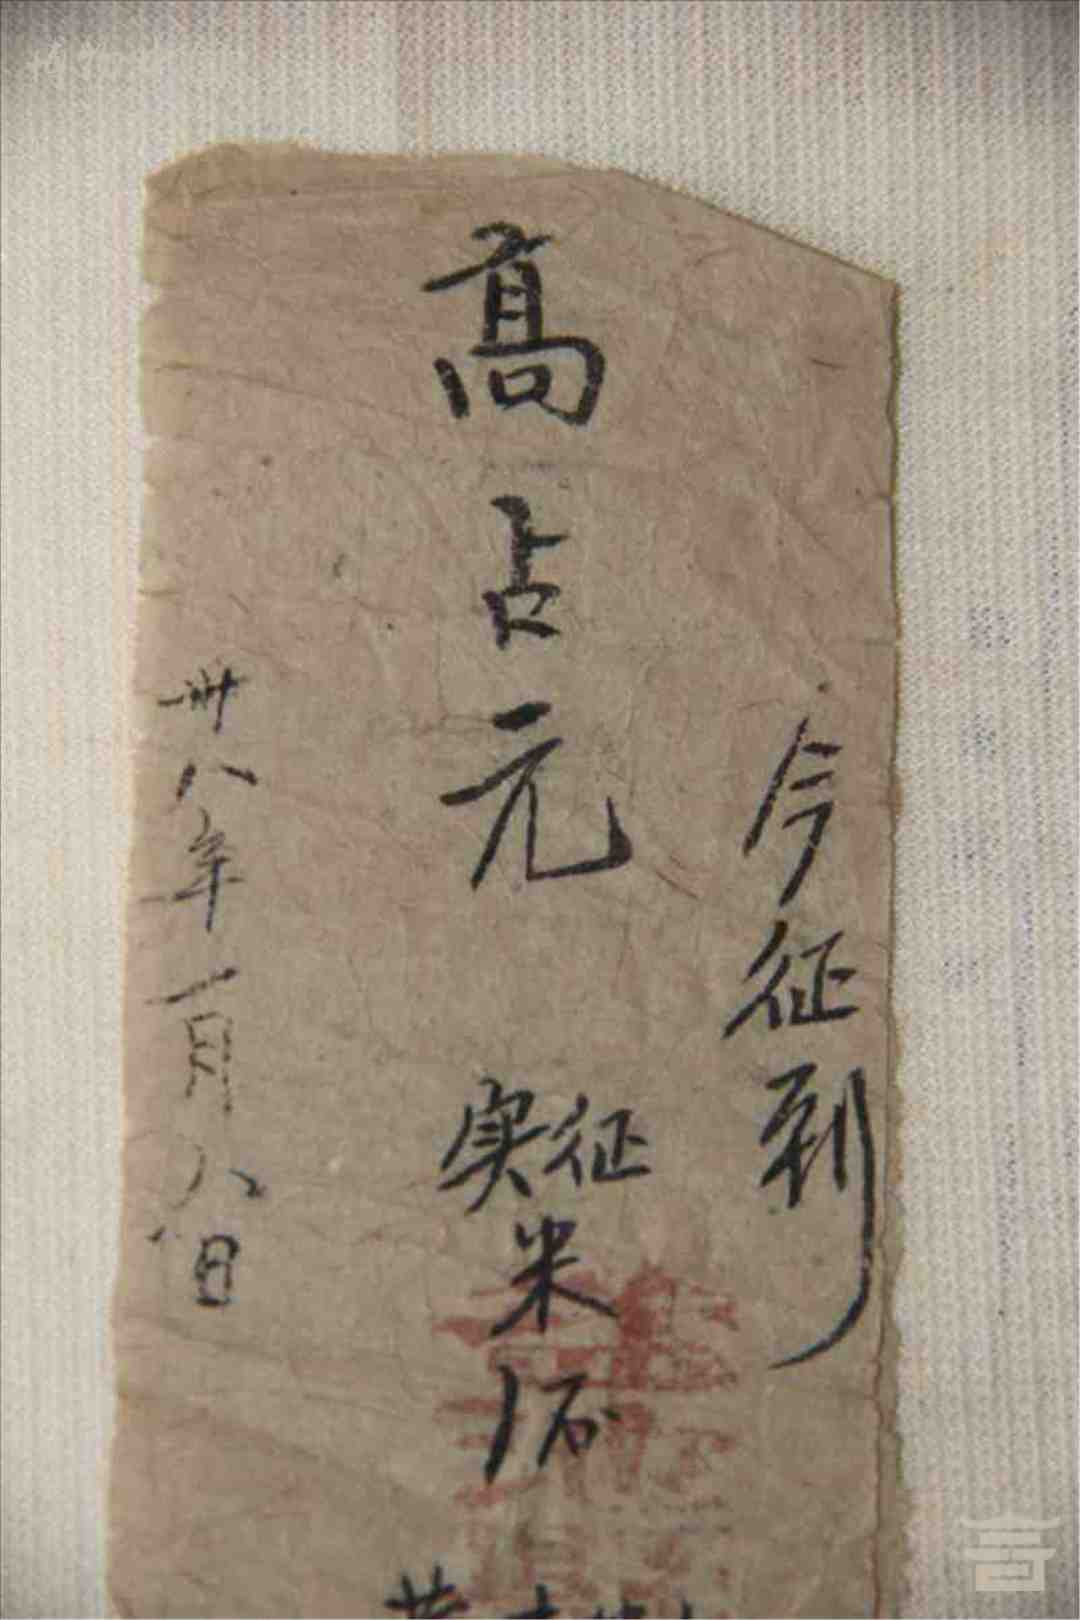 今征到
高占元 实征米1石
卅八年一月八日